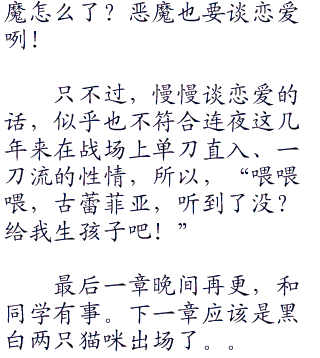 魔怎么了？恶魔也要谈恋爱
咧！
只不过，慢慢谈恋爱的
话，似乎也不符合连夜这几
年来在战场上单刀直入、一
刀流的性情，所以，“喂喂
喂，古蕾菲亚，听到了没？
给我生孩子吧！”
最后一章晚间再更，和
同学有事。下一章应该是黑
白两只猫咪出场了。。